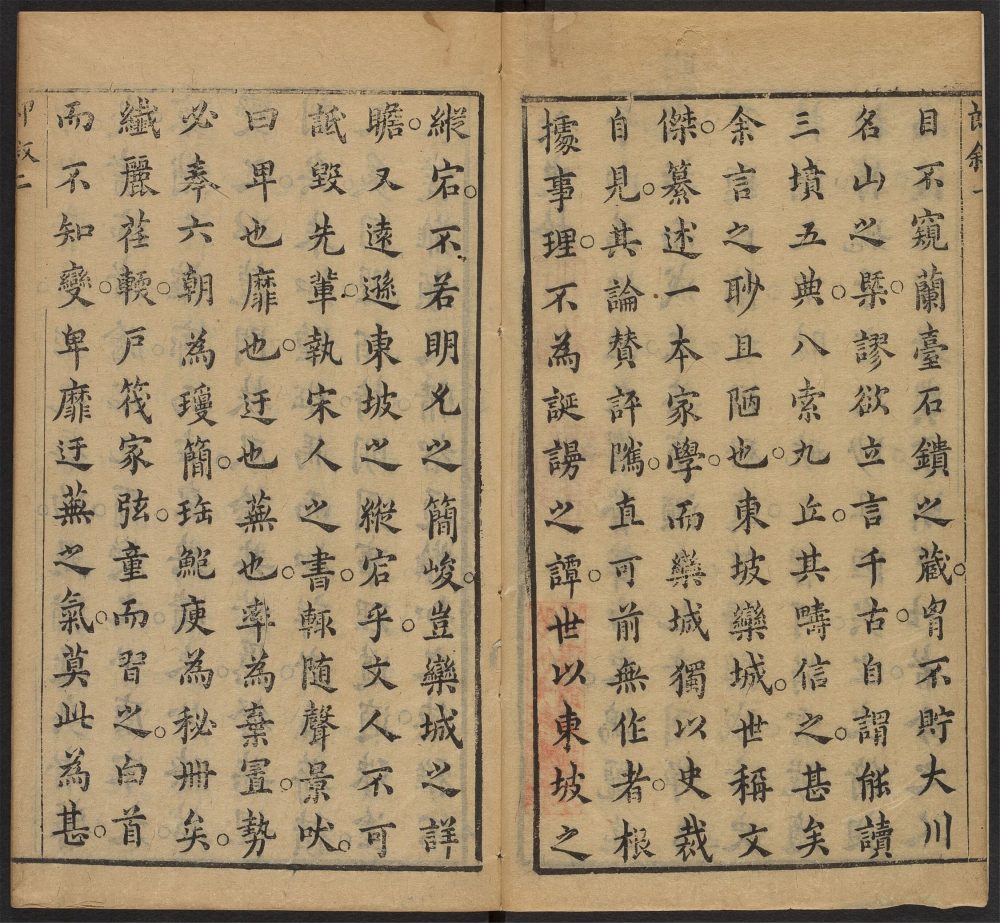 目不窺蘭臺石鐀之藏。胷不貯大川
名山之槩。謬欲立言千古。自謂能讀
三墳五典。八索九丘。其疇信之。甚矣
余言之眇且陋也。東坡欒城。世稱文
傑。纂述一本家學。而欒城獨以史裁
自見。其論贊評隲。直可前無作者。根
據事理。不為誕謾之譚。世以東坡之
縱宕。不若明允之簡峻。豈欒城之詳
瞻。又遠遜東坡之縱宕乎。文人不可
詆毀先輩。執宋人之書。輒随聲景吠。
曰卑也靡也。迂也蕪也。率為棄置。勢
必奉六朝為瓊簡。珤鮑庾為秘冊矣。
纎麗荏輭。戶筏家弦。童而習之。白首
而不知變。卑靡迂蕪之氣。莫此為甚。